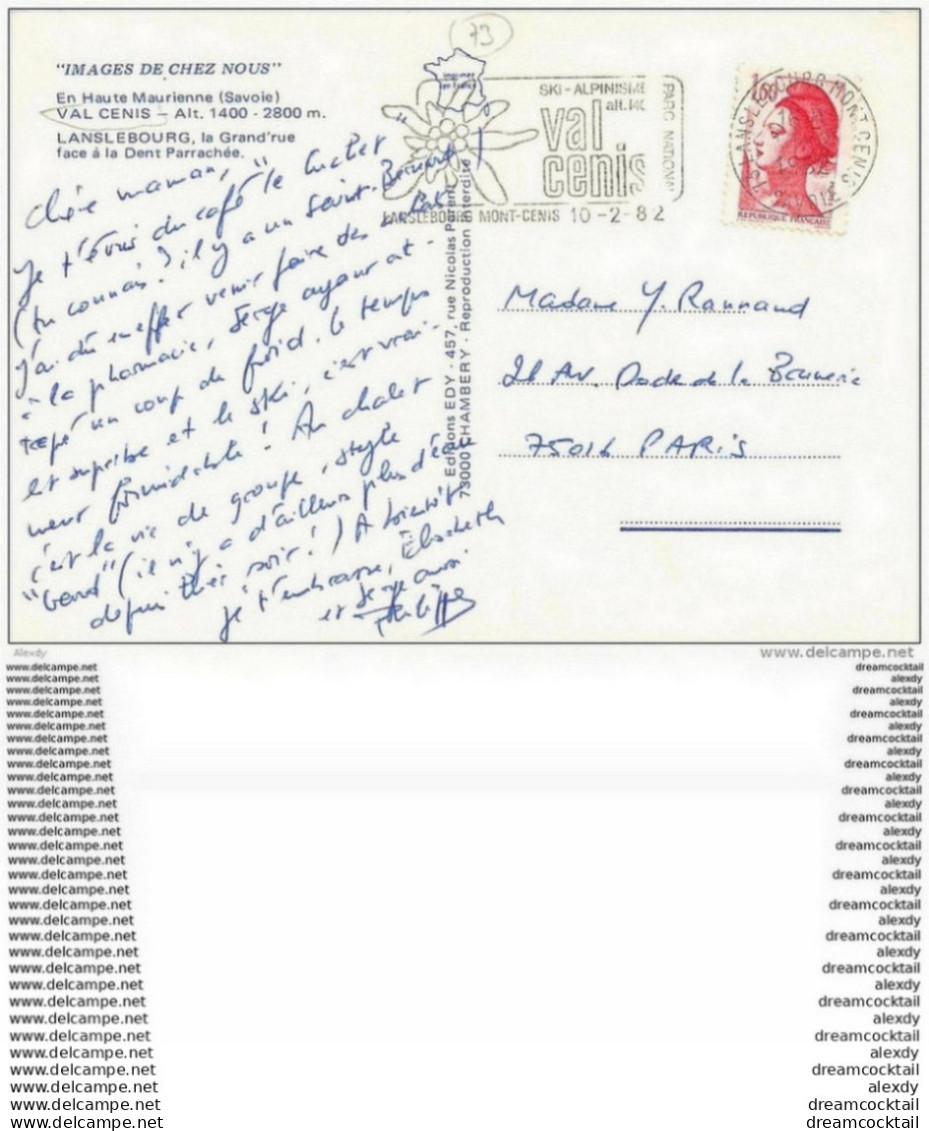 73
"IMAGES DE CHEZ NOUS"
En Haute Maurienne (Savoie)
VAL CENIS - Alt. 1400 - 2800 m.
LANSLEBOURG, la Grand'rue
face à la Dent Parrachée.
Imprimé
en France
SKI-ALPINISME
alt.
val
cenis
PARC NATIONAL
LANSLEBOURG MONT-CENIS 10-2-82
LANSLEBOURG-MONT-CENIS
SAVOIE
REPUBLIQUE FRANCAISE
Chère maman,
Je t'écris du café "le chalet"
(tu connais? il y a un Saint-Bernard!)
J'ai dû en effet venir faire des
à la pharmacie, Serge ayant at-
trapé un coup de froid. le temps
est superbe et le ski, c'est vrai-
ment formidable! Au chalet
c'est la vie de groupe, style
(il n'y a d'ailleurs plus d'eau
depuis hier soir!) A bientôt
je t'embrasse, Elisabeth
et Serge aussi
Philippe
Editions EDY - 457, rue Nicolas Parent
73000 CHAMBERY - Reproduction interdite
Madame Y.
21 Av.
75016 PARIS
Alexdy
www.delcampe.net
www.delcampe.net dreamcocktail
www.delcampe.net alexdy
www.delcampe.net dreamcocktail
www.delcampe.net alexdy
www.delcampe.net dreamcocktail
www.delcampe.net alexdy
www.delcampe.net dreamcocktail
www.delcampe.net alexdy
www.delcampe.net dreamcocktail
www.delcampe.net alexdy
www.delcampe.net dreamcocktail
www.delcampe.net alexdy
www.delcampe.net dreamcocktail
www.delcampe.net alexdy
www.delcampe.net dreamcocktail
www.delcampe.net alexdy
www.delcampe.net dreamcocktail
www.delcampe.net alexdy
www.delcampe.net dreamcocktail
www.delcampe.net alexdy
www.delcampe.net dreamcocktail
www.delcampe.net alexdy
www.delcampe.net dreamcocktail
www.delcampe.net alexdy
www.delcampe.net dreamcocktail
www.delcampe.net alexdy
www.delcampe.net dreamcocktail
www.delcampe.net alexdy
www.delcampe.net dreamcocktail
www.delcampe.net alexdy
www.delcampe.net dreamcocktail
www.delcampe.net dreamcocktail